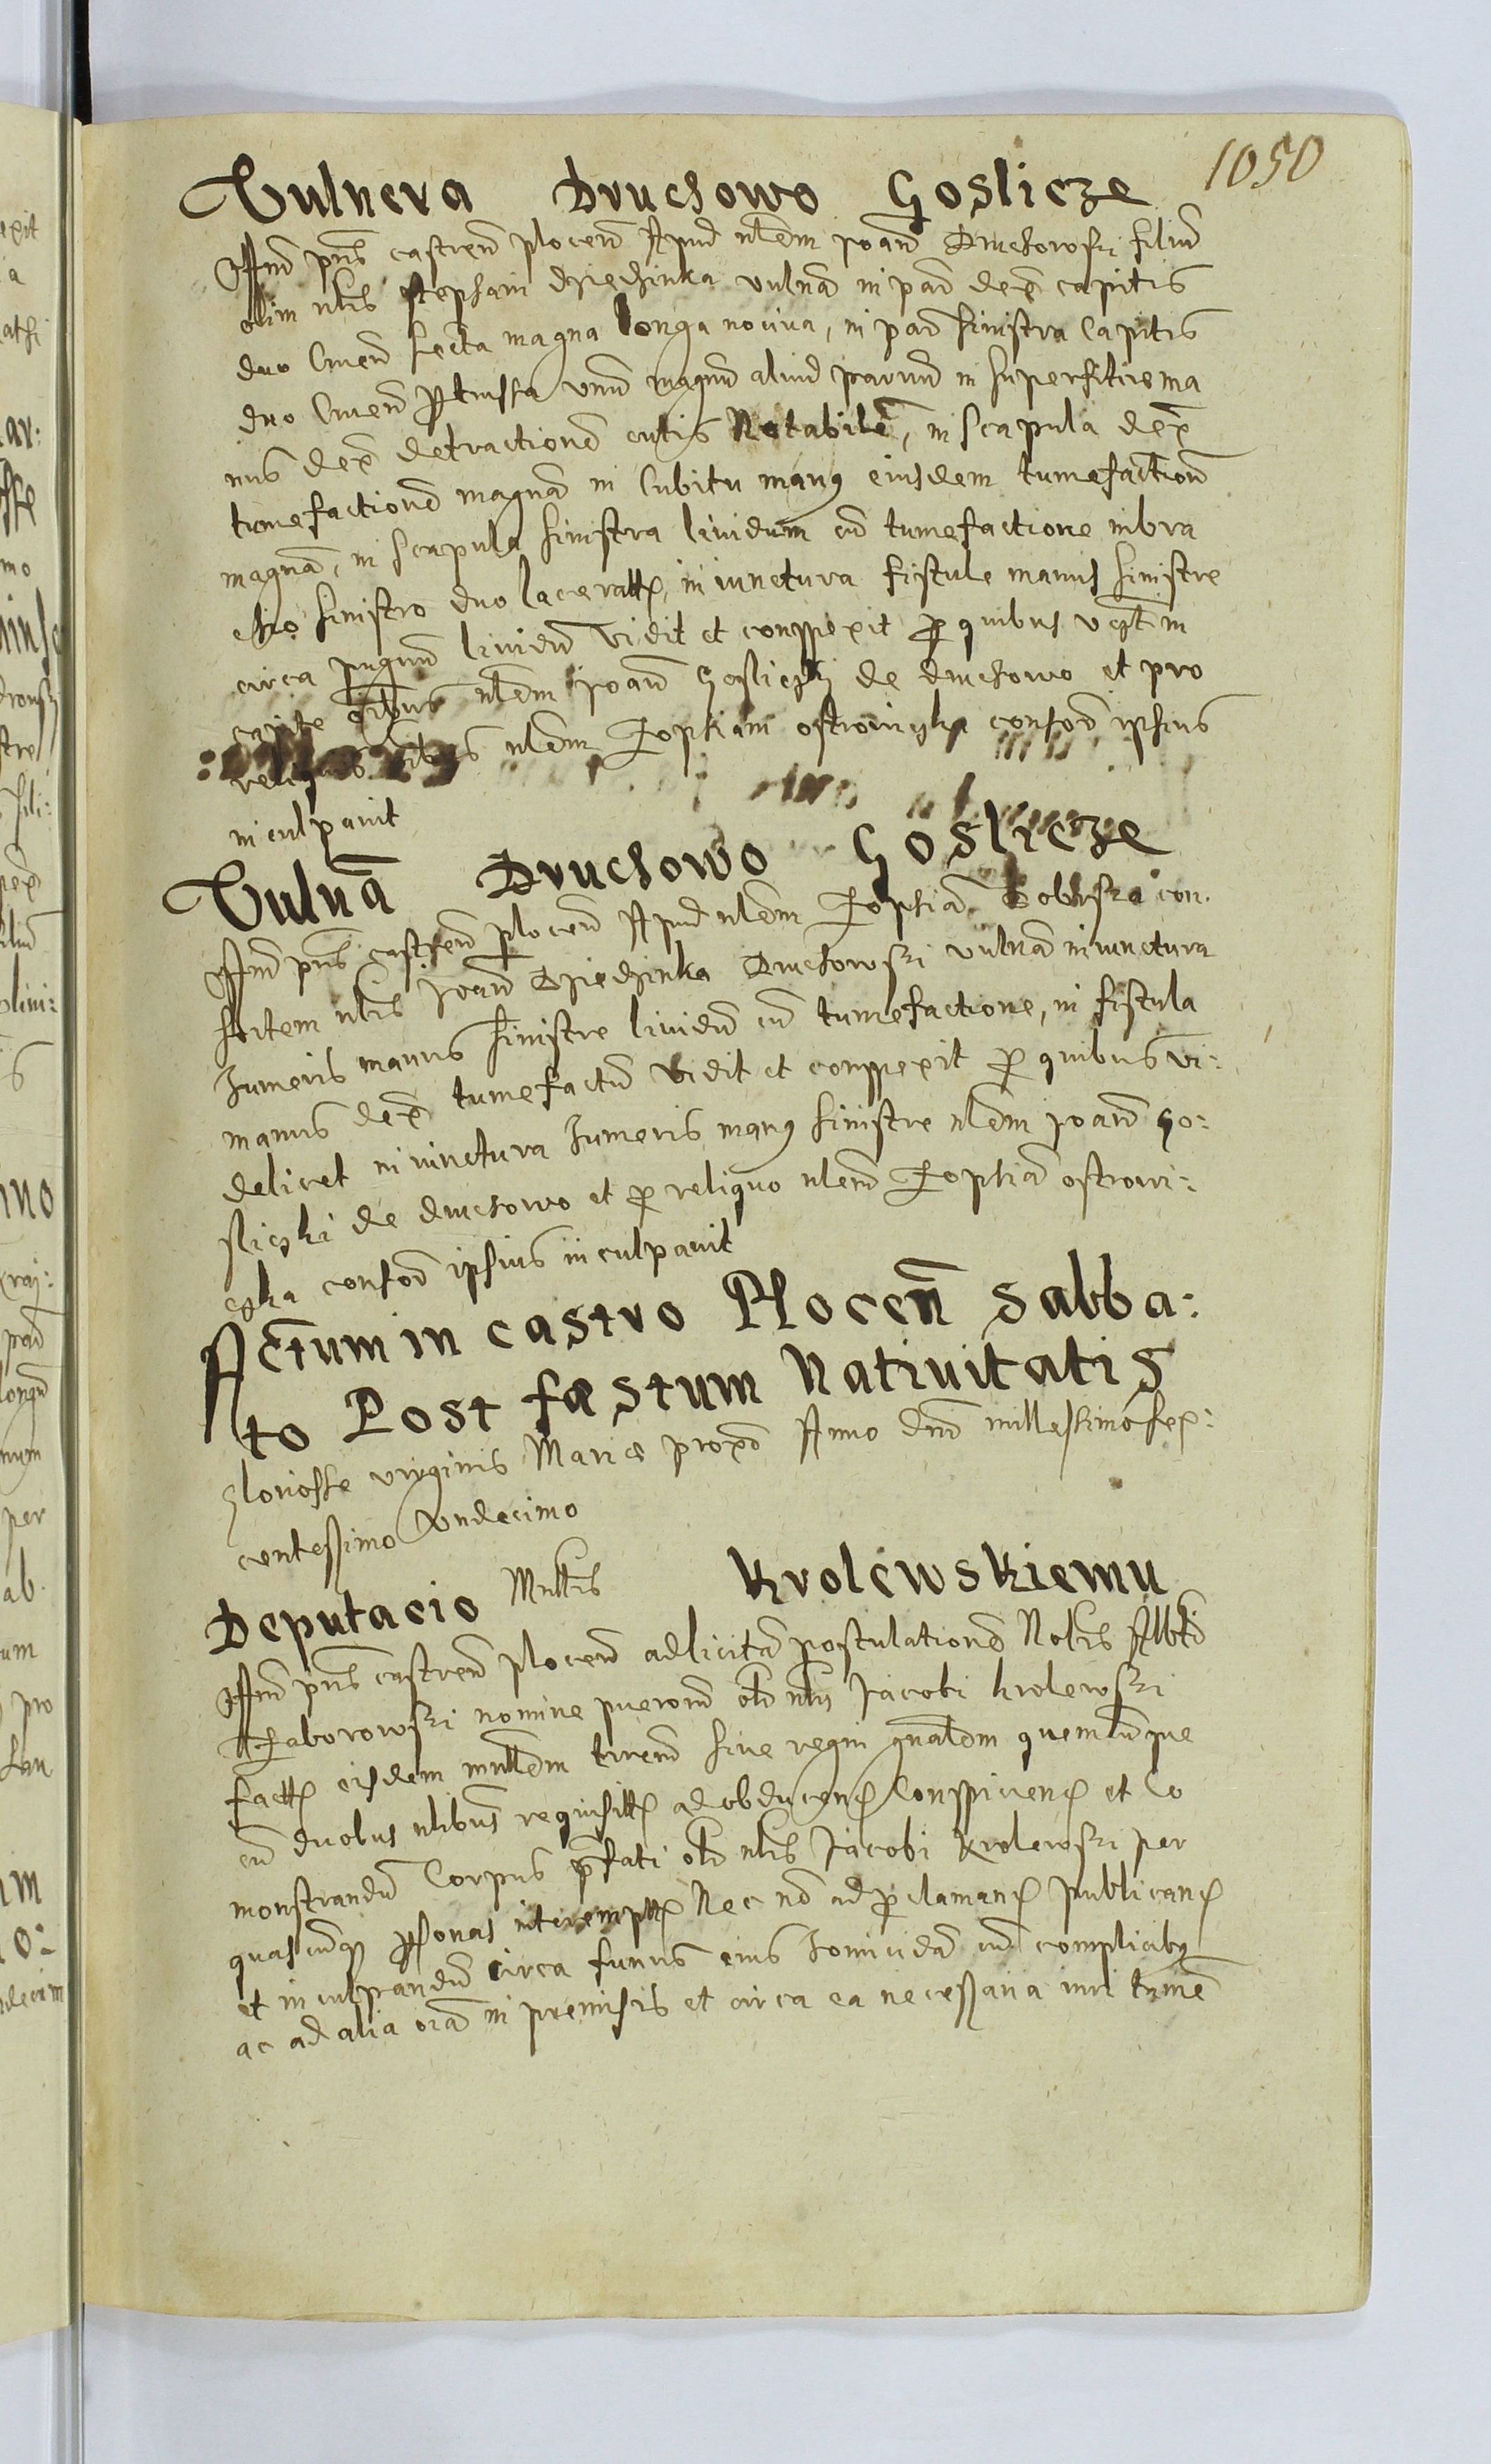 1050
Vulnera Druchowo Goslicze
Offm pñs castreñ plocen̄ Apud nlem Joañ Druchowski filiū
olim nlis Stephani dziedzinka vulnā in par dex̄ capitis
duo cruen̄ secta magna longa nociva, in par sinistra Capitis
duo Cruen̄ pertussa unū magnū aliud parvū in superficie ma
nus dex̄ detractionē cutis Notabilē, in scapula dex̄
tumefactionē magnā in Cubitu manus eiusdem tumefactionē
magnā, in scapula sinistra lividum cū tumefactione in bra
chio sinistro duo lacerata, in iunctura fistule manus sinistre
circa pugnū lividū Vidit et conspexit pro quibus in
capite nlem Joañ Gosliczki de druchowo et pro
nlem Zophiam ostrowiczka consor̄ ipsius
inculpavit
Vulnā Druchowo Goslicze
Offm pñs castren̄ plocen̄ Apud nlem Zophiā con.
sortem nlis Joañ Dziedzinka Druchowski vulnā in iunctura
humeris manus sinistre lividū cū tumefactione, in fistula
manus dex̄ tumefactū Vidit et conspexit pro quibus vi:
delicet in iunctura humeris manus sinistre nlem Joañ Go:
sliczki de druchowo et pro reliquo nlem Zophiā ostrowi:
czka consor̄ ipsius inculpavit
Actum in castro Plocen̄ Sabba:
to Post fæstum Nativitatis
gloriosse virginis Mariæ proxō Anno dnī millessimo sex:
centessimo Undecimo
Deputacio Mltis Krolewskiemu
Offm pñs castren̄ plocen̄ ad licitā postulationē Nobis Albti
Zaborowski nomine puerorū olī nlis Jacobi krolewski
factā eisdem mltem terrēm sive regni gnalem quemcunque
cū duobus nlibus requisitā ad obducen̄ Conspicien̄ et Co
monstrandū Corpus prefati olī nlis Jacobi Krolewski per
quascunque personas interemptū Nec nō ad proclaman̄ publican̄
et inculpandū circa funus eius homicidā cū complicibus
ac ad alia oīa in premissis et circa ea necessaria